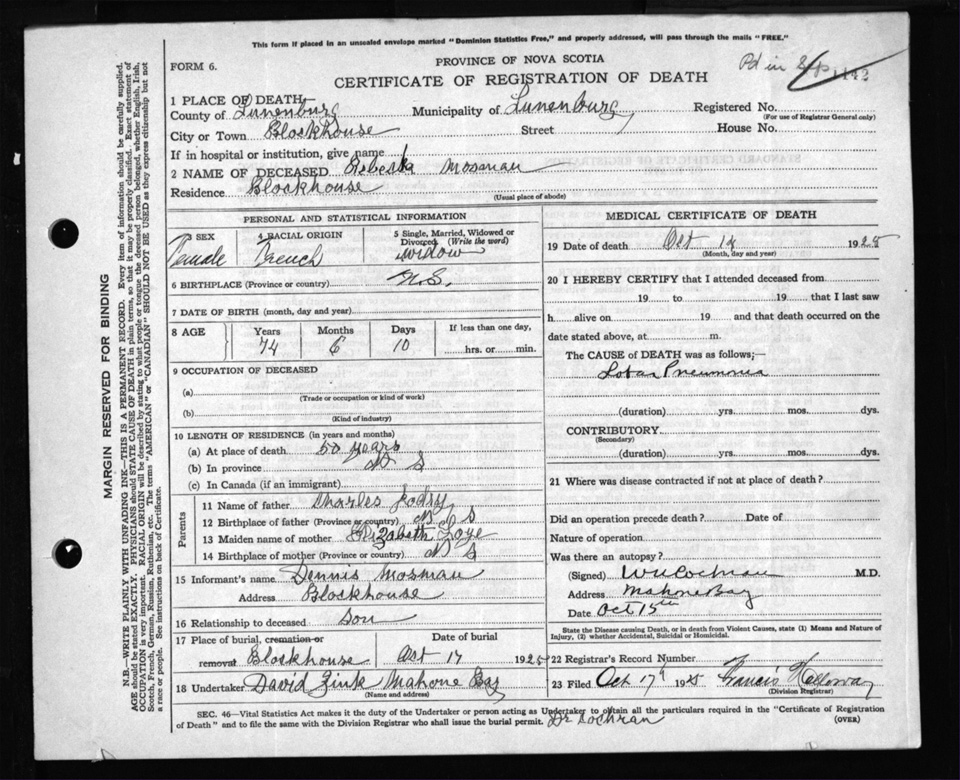 This form if placed in an unsealed envelope marked "Dominion Statistics Free," and properly addressed, will pass through the mails "FREE."
FORM 6.
PROVINCE OF NOVA SCOTIA
CERTIFICATE OF REGISTRATION OF DEATH
Pd in
1142
1 PLACE OF DEATH
County of Lunenburg Municipality of Lunenburg Registered No.
(For use of Registrar General only)
City or Town Blockhouse Street House No.
If in hospital or institution, give name
2 NAME OF DECEASED Rebecka Mosman
Residence Blockhouse
(Usual place of abode)
PERSONAL AND STATISTICAL INFORMATION
3 SEX Female
4 RACIAL ORIGIN French
5 Single, Married, Widowed or Divorced (Write the word) Widow
6 BIRTHPLACE (Province or country) N.S.
7 DATE OF BIRTH (month, day and year)
8 AGE Years 74 Months 6 Days 10 If less than one day, hrs. or min.
9 OCCUPATION OF DECEASED
(a)
(Trade or occupation or kind of work)
(b)
(Kind of industry)
10 LENGTH OF RESIDENCE (in years and months)
(a) At place of death 50 years
(b) In province N S
(c) In Canada (if an immigrant)
Parents
11 Name of father Charles
12 Birthplace of father (Province or country) N S
13 Maiden name of mother Elizabeth
14 Birthplace of mother (Province or country) N S
15 Informant's name Dennis Mosman
Address Blockhouse
16 Relationship to deceased Son
17 Place of burial, cremation or removal Blockhouse Date of burial Oct 17 1925
18 Undertaker David Zink Mahone Bay
(Name and address)
MEDICAL CERTIFICATE OF DEATH
19 Date of death Oct 192
(Month, day and year)
20 I HEREBY CERTIFY that I attended deceased from
19 to 19 that I last saw
h alive on 19 and that death occurred on the
date stated above, at m.
The CAUSE of DEATH was as follows;—
Lobar Pneumonia
(duration) yrs. mos. dys.
CONTRIBUTORY
(Secondary)
(duration) yrs. mos. dys.
21 Where was disease contracted if not at place of death?
Did an operation precede death? Date of
Nature of operation
Was there an autopsy?
(Signed) Cochran M.D.
Address Mahone Bay
Date Oct 15th
State the Disease causing Death, or in death from Violent Causes, state (1) Means and Nature of Injury, (2) whether Accidental, Suicidal or Homicidal.
22 Registrar's Record Number
23 Filed Oct 17th 1925 Francis Holloway
(Division Registrar)
SEC. 46—Vital Statistics Act makes it the duty of the Undertaker or person acting as Undertaker to obtain all the particulars required in the "Certificate of Registration
of Death" and to file the same with the Division Registrar who shall issue the burial permit. Dr Cochran (OVER)
MARGIN RESERVED FOR BINDING
N.B.—WRITE PLAINLY WITH UNFADING INK—THIS IS A PERMANENT RECORD. Every item of information should be carefully supplied.
AGE should be stated EXACTLY. PHYSICIANS should STATE CAUSE OF DEATH in plain terms, so that it may be properly classified. Exact statement of
OCCUPATION is very important. RACIAL ORIGIN will be described by stating to what people or tongue the deceased person belonged, whether English, Irish,
Scotch, French, German, Russian, Ruthenian, etc. The terms "AMERICAN" or "CANADIAN" SHOULD NOT BE USED as they express citizenship but not
a race or people. See instructions on back of Certificate.